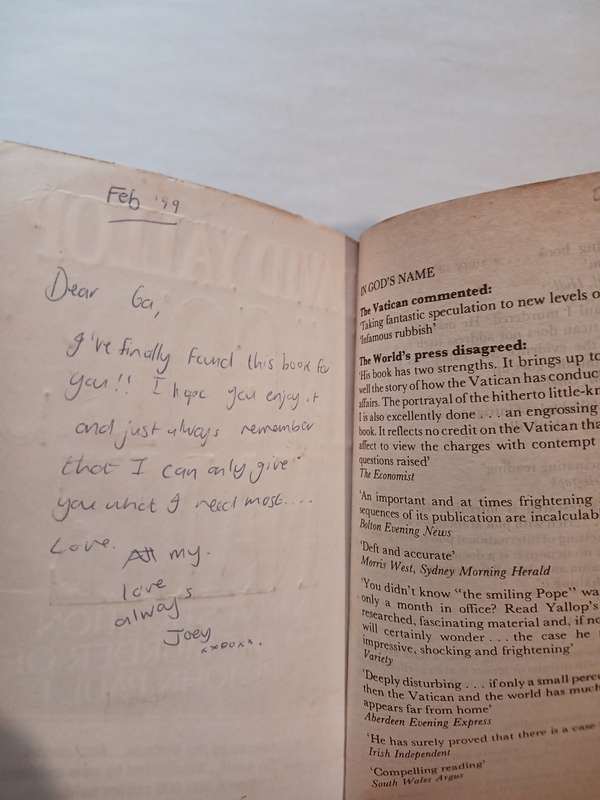 Feb '99
Dear Ga,
I've finally found this book for
you!! I hope you enjoy it
and just always remember
that I can only give
you what I need most....
Love. All my
love
always
Joey
xxooxx.
IN GOD'S NAME
The Vatican commented:
'Taking fantastic speculation to new levels o
'Infamous rubbish'
The World's press disagreed:
'His book has two strengths. It brings up to
well the story of how the Vatican has conduc
affairs. The portrayal of the hitherto little-kn
I is also excellently done . . . an engrossing
book. It reflects no credit on the Vatican tha
affect to view the charges with contempt
questions raised'
The Economist
'An important and at times frightening
sequences of its publication are incalculab
Bolton Evening News
'Deft and accurate'
Morris West, Sydney Morning Herald
'You didn't know "the smiling Pope" wa
only a month in office? Read Yallop's
researched, fascinating material and, if no
will certainly wonder . . . the case he
impressive, shocking and frightening'
Variety
'Deeply disturbing . . . if only a small perce
then the Vatican and the world has much
appears far from home'
Aberdeen Evening Express
'He has surely proved that there is a case
Irish Independent
'Compelling reading'
South Wales Argus